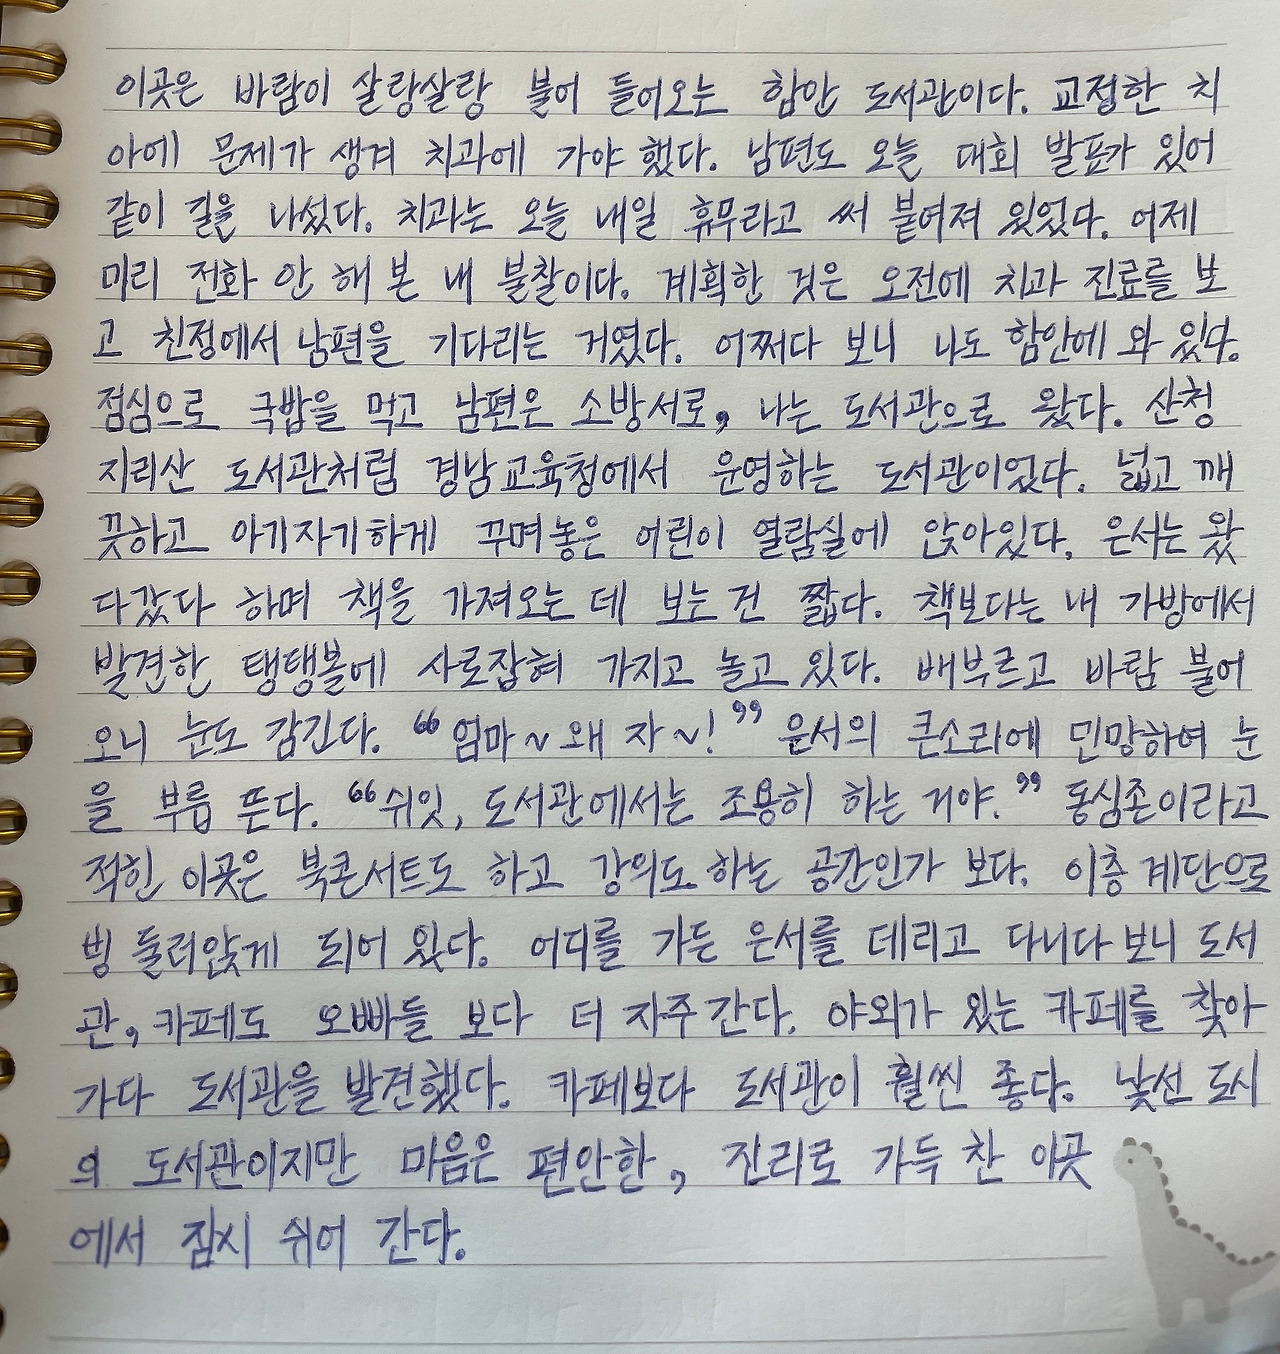 이곳은 바람이 살랑살랑 불어 들어오는 함안 도서관이다. 교정한 치
아에 문제가 생겨 치과에 가야 했다. 남편도 오늘 대회 발표가 있어
같이 길을 나섰다. 치과는 오늘 내일 휴무라고 써 붙여져 있었다. 어제
미리 전화 안 해 본 내 불찰이다. 계획한 것은 오전에 치과 진료를 보
고 친정에서 남편을 기다리는 거였다. 어쩌다 보니 나도 함안에 와 있다.
점심으로 국밥을 먹고 남편은 소방서로, 나는 도서관으로 왔다. 산청
지리산 도서관처럼 경남교육청에서 운영하는 도서관이었다. 넓고 깨
끗하고 아기자기하게 꾸며놓은 어린이 열람실에 앉아있다. 은서는 왔
다갔다 하며 책을 가져오는 데 보는 건 짧다. 책보다는 내 가방에서
발견한 탱탱볼에 사로잡혀 가지고 놀고 있다. 배부르고 바람 불어
오니 눈도 감긴다. “엄마~ 왜 자~!” 은서의 큰소리에 민망하여 눈
을 부릅 뜬다. “쉬잇, 도서관에서는 조용히 하는 거야.” 동심존이라고
적힌 이곳은 북콘서트도 하고 강의도 하는 공간인가 보다. 이층 계단으로
빙 둘러앉게 되어 있다. 어디를 가든 은서를 데리고 다니다 보니 도서
관, 카페도 오빠들 보다 더 자주 간다. 야외가 있는 카페를 찾아
가다 도서관을 발견했다. 카페보다 도서관이 훨씬 좋다. 낯선 도시
의 도서관이지만 마음은 편안한, 진리로 가득 찬 이곳
에서 잠시 쉬어 간다.